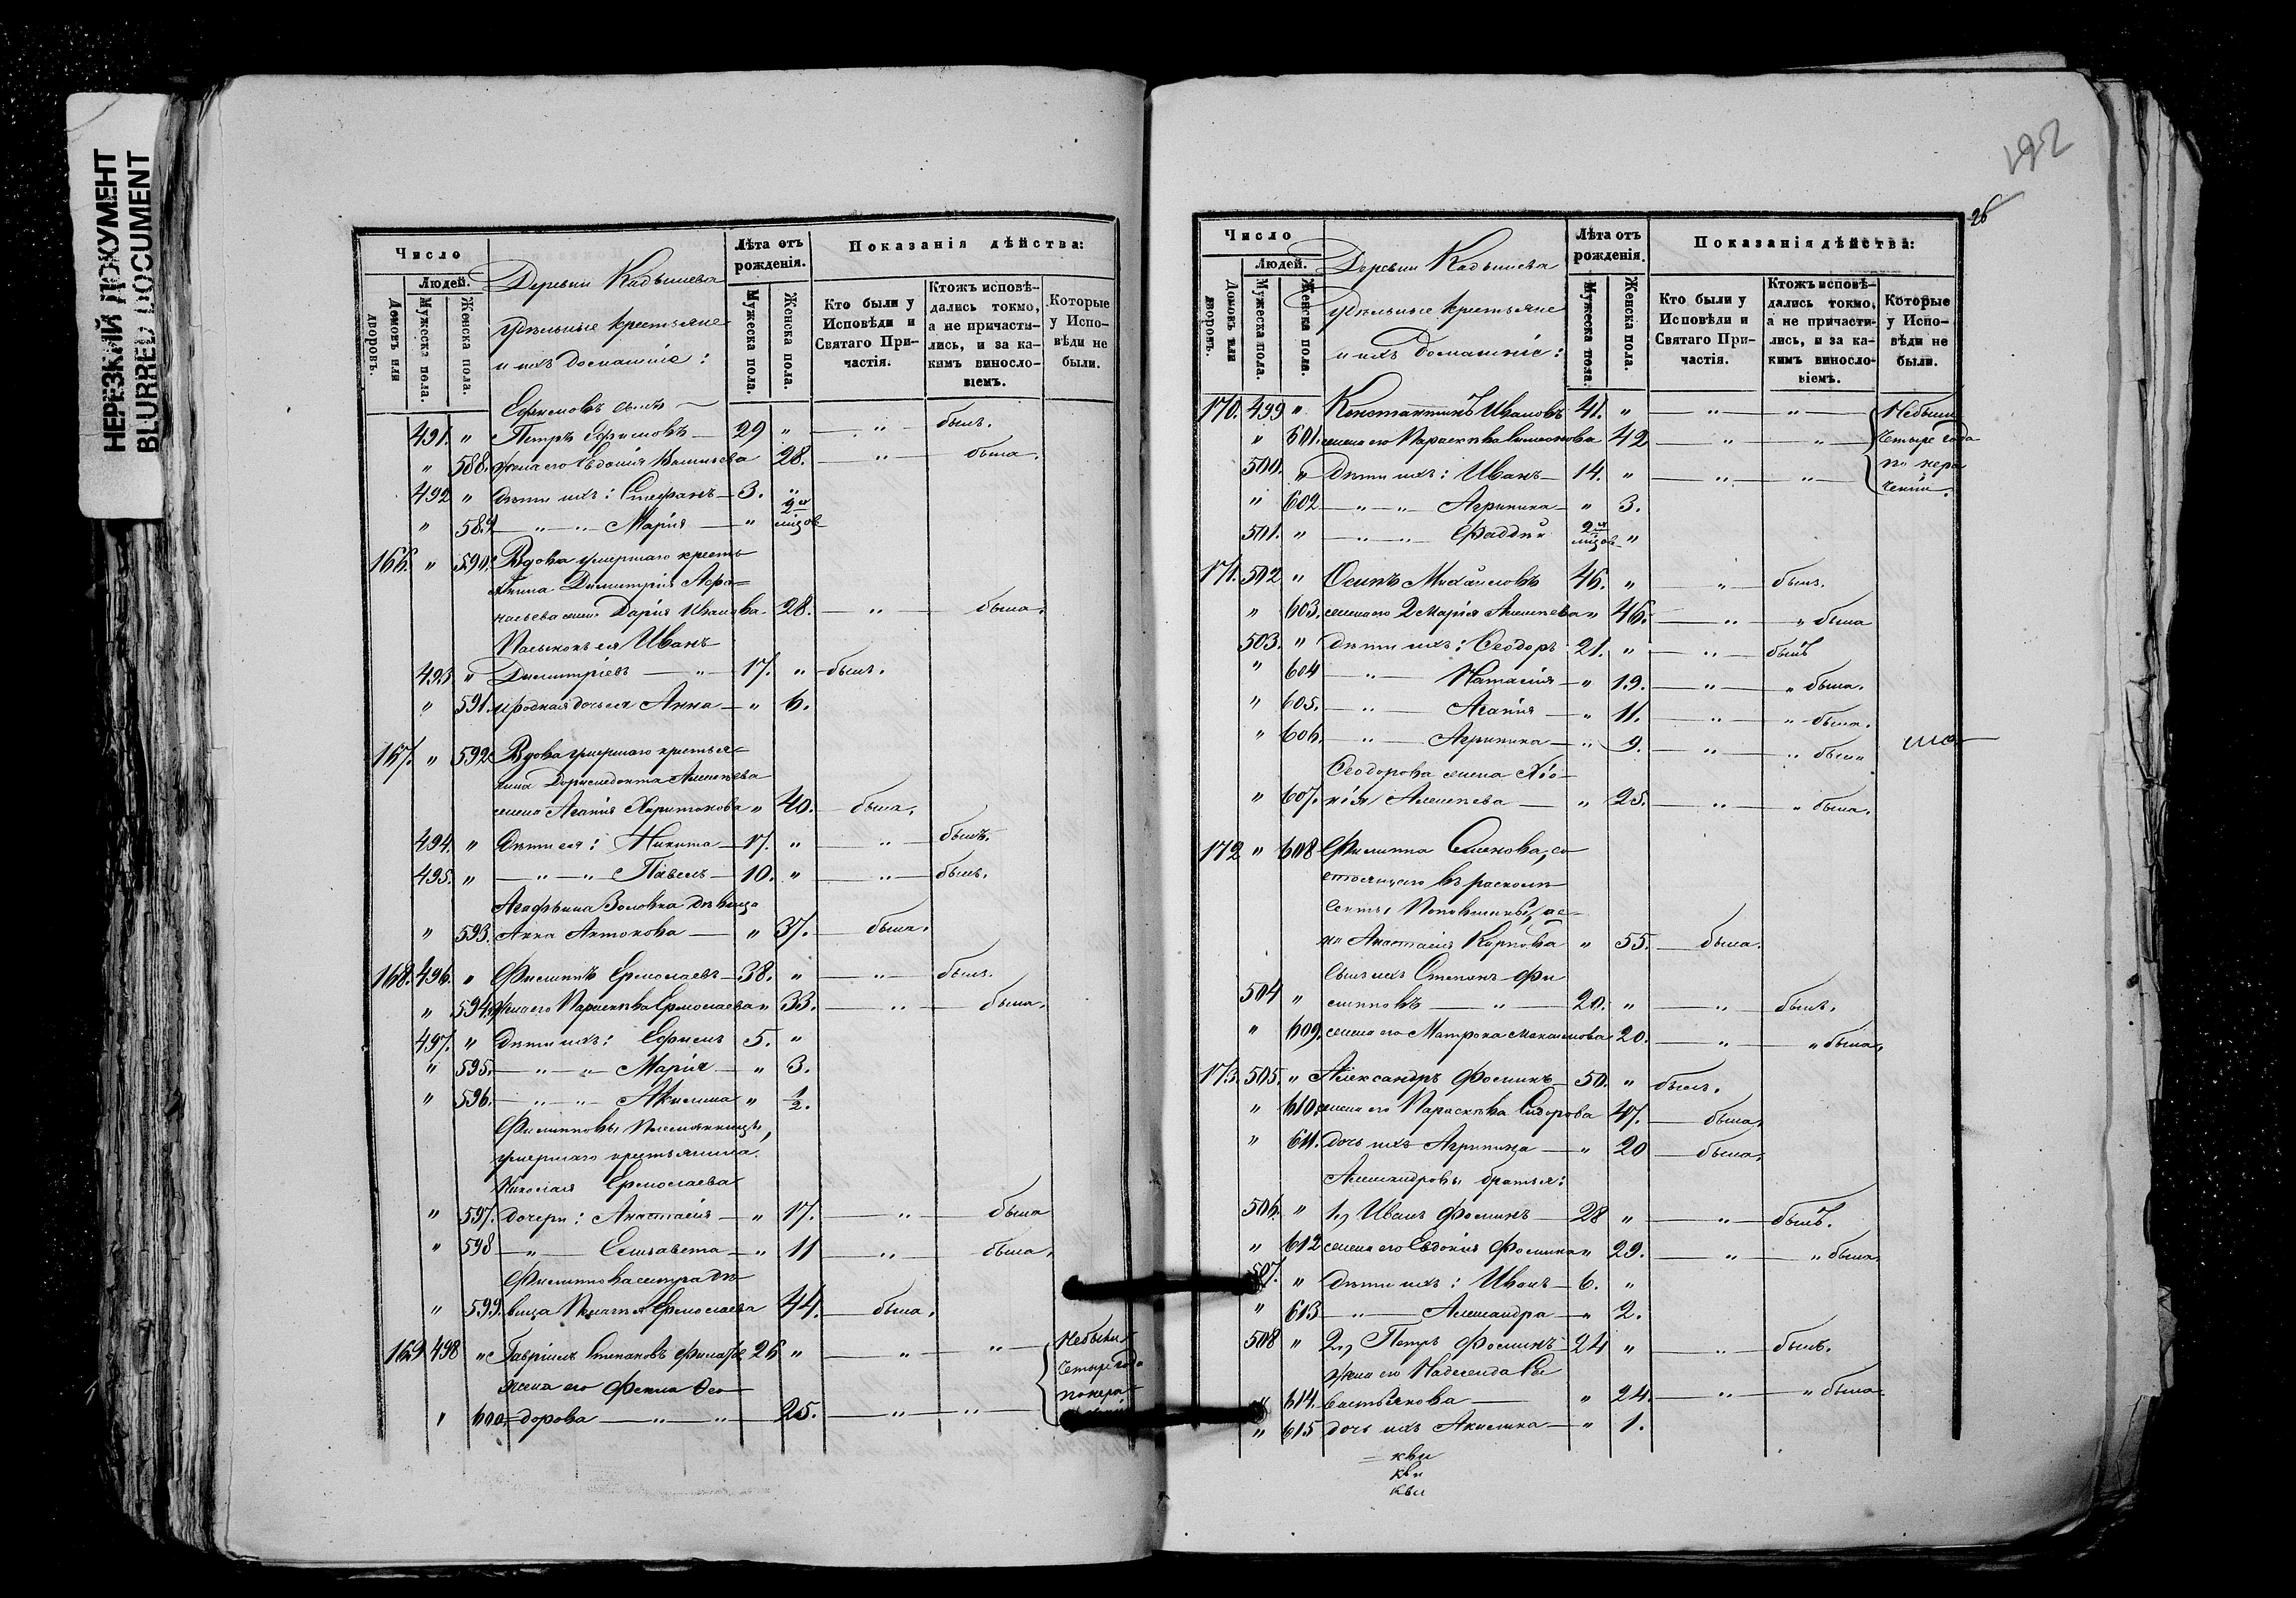 НЕРЕЗКИЙ ДОКУМЕНТ
BLURRED DOCUMENT
Число
Людей.
Домовъ или дворовъ.
Мужеска пола.
Женска пола.
Деревни Кадышева
удѣльные крестьяне
и ихъ домашніе:
Лѣта отъ рожденія.
Мужеска пола.
Женска пола.
Показанія дѣйства:
Кто были у Исповѣди и Святаго Причастія.
Ктожъ исповѣдались токмо, а не причастились, и за какимъ винословіемъ.
Которые у Исповѣди не были.
Ефимовъ сынъ
491. " Петръ Ефимовъ 29 " " былъ.
" 588. жена его Евдокія 28. " была.
492 " Дѣти ихъ: Стефанъ 3. "
" 589 " " Марія " 2 мцов
166. " 590. Вдова умершаго кресть
янина Димитрія Афа=
насьева жена Дарія Иванова 28. " была.
Пасынокъ ея Иванъ
493 " Димитріевъ " 17. " былъ.
" 591. и родная дочь ея Анна " 6.
167. " 592 Вдова умершаго крестья=
нина Дормедонта Алексѣева
жена Агапія Харитонова " 40. была.
494. " Дѣти ея: Никита 17. " " былъ.
495. " " " Павелъ 10. " " былъ.
Агафьина Золовка дѣвица
" 593. Анна Антонова " 37. была.
168. 496. " Филиппъ Ермолаевъ 38. " " былъ.
" 594. жена его Параскева Ермолаева " 33. " была.
497. " Дѣти ихъ: Ефимъ 5. "
" 595. " " Марія " 3.
" 596. " " Акилина " 1/2.
Филипповы племянницы,
умершаго крестьянина
Николая Ермолаева
" 597. дочери: Анастасія " 17. " была
" 598 " Елизавета " 11 " была.
Филиппова сестра дѣ
" 599. вица Пелагея Ермолаева 44. была.
169 498 " Гавріилъ Степановъ 26 " " " Небыли
жена его Фекла Ѳео четыре года
" 600. дорова " " 25. " " по нера
192
26
Число
Людей.
Домовъ или дворовъ.
Мужеска пола.
Женска пола.
Деревни Кадышева
удѣльные крестьяне
и ихъ домашніе:
Лѣта отъ рожденія.
Мужеска пола.
Женска пола.
Показанія дѣйства:
Кто были у Исповѣди и Святаго Причастія.
Ктожъ исповѣдались токмо, а не причастились, и за какимъ винословіемъ.
Которые у Исповѣди не были.
170. 499 " Константинъ Ивановъ 41. " " " Небыли
" 601. жена его Параскева Симеонова 42 " " четыре года
500. " Дѣти ихъ: Иванъ 14. " " " по нера
" 602 " " Агрипина " 3. ченію.
501. " " " Фаддѣй 2 мцов "
171. 502 " Осипъ Михайловъ 46. " " былъ.
" 603. жена его 2 Марія Алексѣева " 46. " " была
503. " Дѣти ихъ: Ѳеодоръ 21. " " былъ
" 604 " Наталія " 19. " " была.
" 605. " Агапія " 11. " " была.
" 606. " Агрипина " 9. " " была
Ѳеодорова жена Хіо=
" 607. нія Алексѣева " 25. " " была.
172 " 608 Филиппа Семенова, со
стоящаго въ расколѣ
секты Поповщины, же=
на Анастасія Карпова " 55. была.
Сынъ ихъ Степанъ Фи
504 " липповъ " 20. " " былъ.
" 609. жена его Матрона Максимова 20. " " была.
173. 505. " Александръ Фоминъ 50. " былъ.
" 610. жена его Параскева Сидорова 47. была.
" 611. дочь ихъ Агрипина " 20 была.
Александровы братья:
506. " 1.) Иванъ Фоминъ 28 " " былъ.
" 612 жена его Евдокія Фомина " 29. " " была.
507. " Дѣти ихъ: Иванъ 6. "
" 613 " Александра " 2.
508 " 2.) Петръ Фоминъ 24 " " былъ.
жена его Надежда Се
" 614. вастьянова " 24. " " была.
" 615 дочь ихъ Акилина " 1.